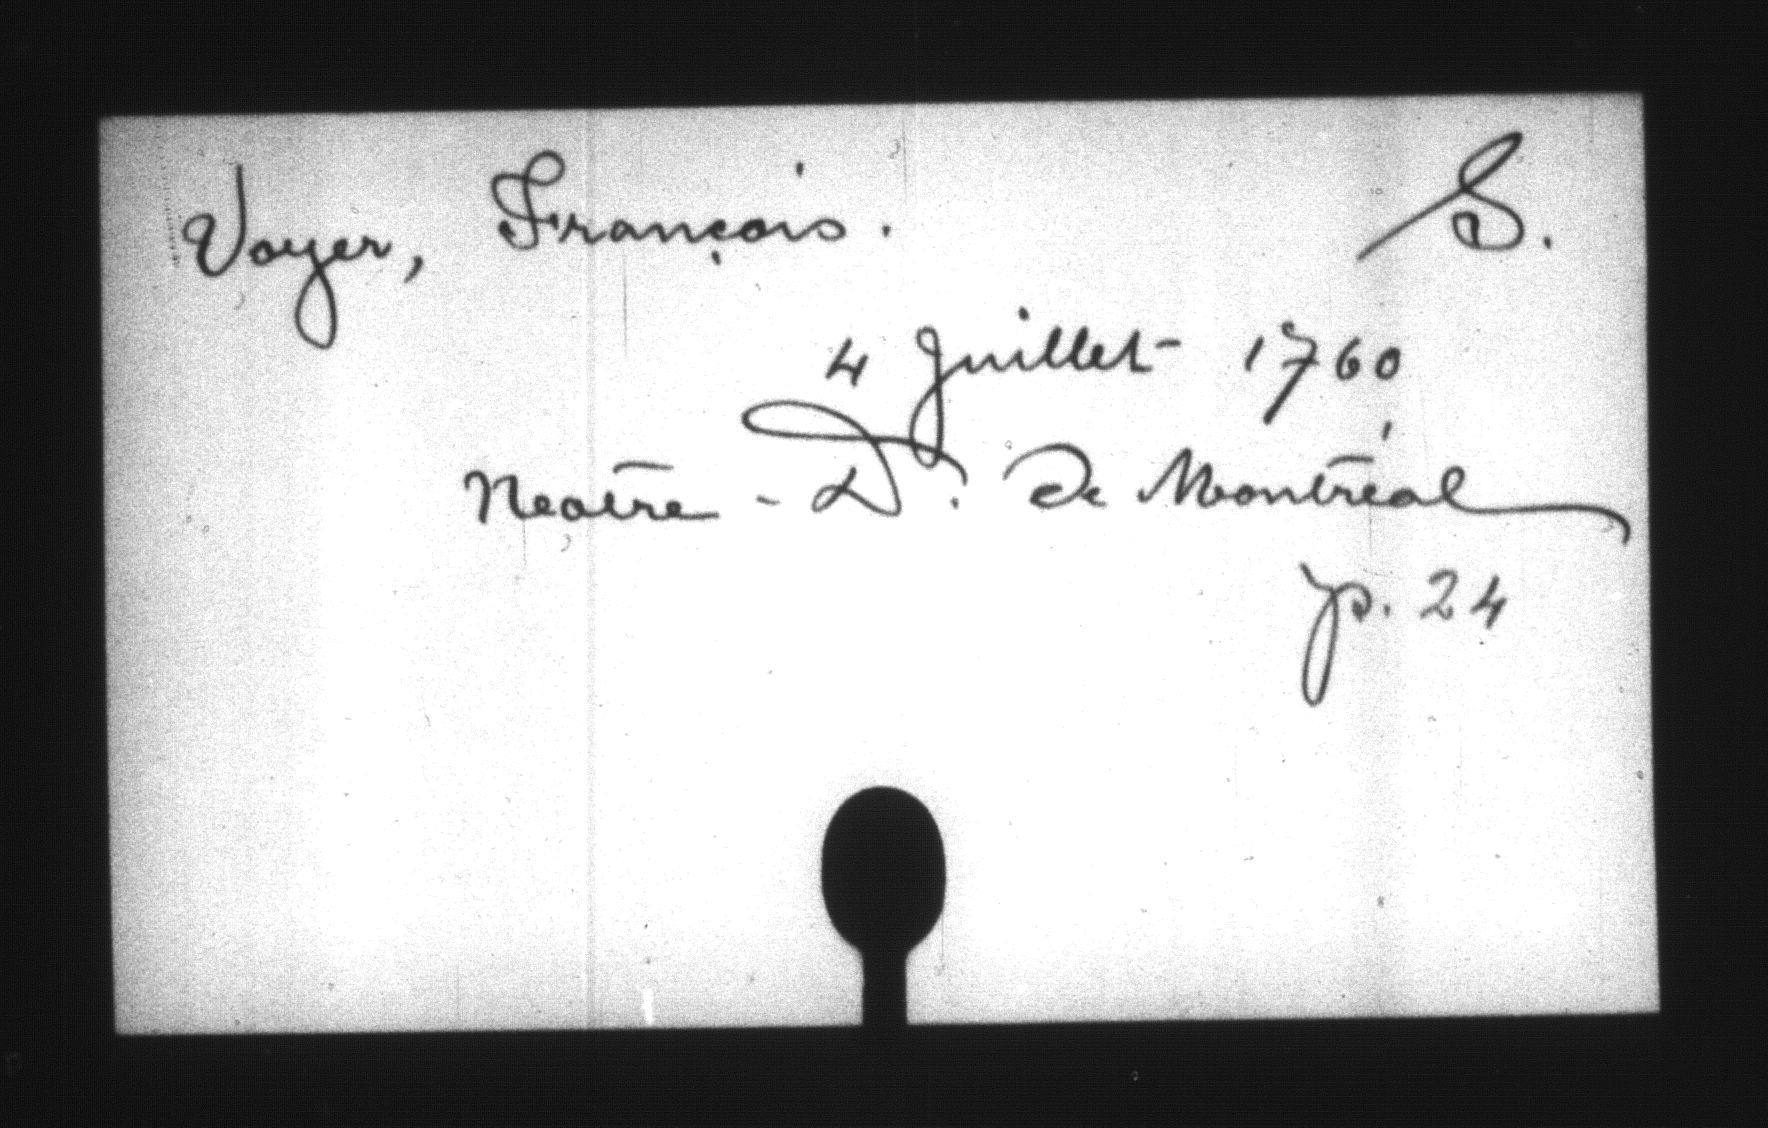 Voyer, François. S.
4 Juillet 1760
Notre - D. de Montréal
p. 24